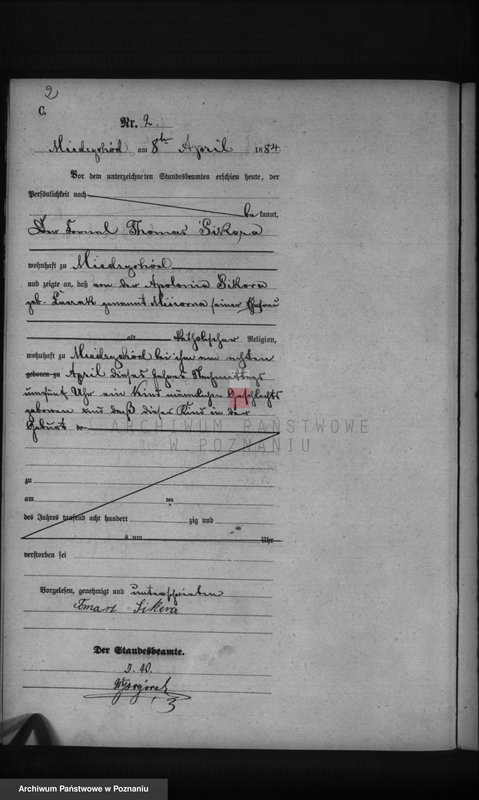 2
C.
Nr. 2.
Miedzychód am 8ten April 1884.
Vor dem unterzeichneten Standesbeamten erschien heute, der
Persönlichkeit nach
be kannt,
Der Thomas Sikora
wohnhaft zu Miedzychód
und zeigte an, daß von der Apolonia Sikora
geb. genannt seiner Ehefrau
alt katholischer Religion,
wohnhaft zu Miedzychód bei ihm am
geboren zu April dieses Jahres Nachmittags
um Uhr ein Kind männlichen Geschlechts
geboren und daß dieses Kind in der
Geburt
ARCHIWUM PAŃSTWOWE
W POZNANIU
zu
am ten
des Jahres tausend acht hundert zig und
um Uhr
verstorben sei
Vorgelesen, genehmigt und unterschrieben
Tomasz Sikora
Der Standesbeamte.
Archiwum Państwowe w Poznaniu